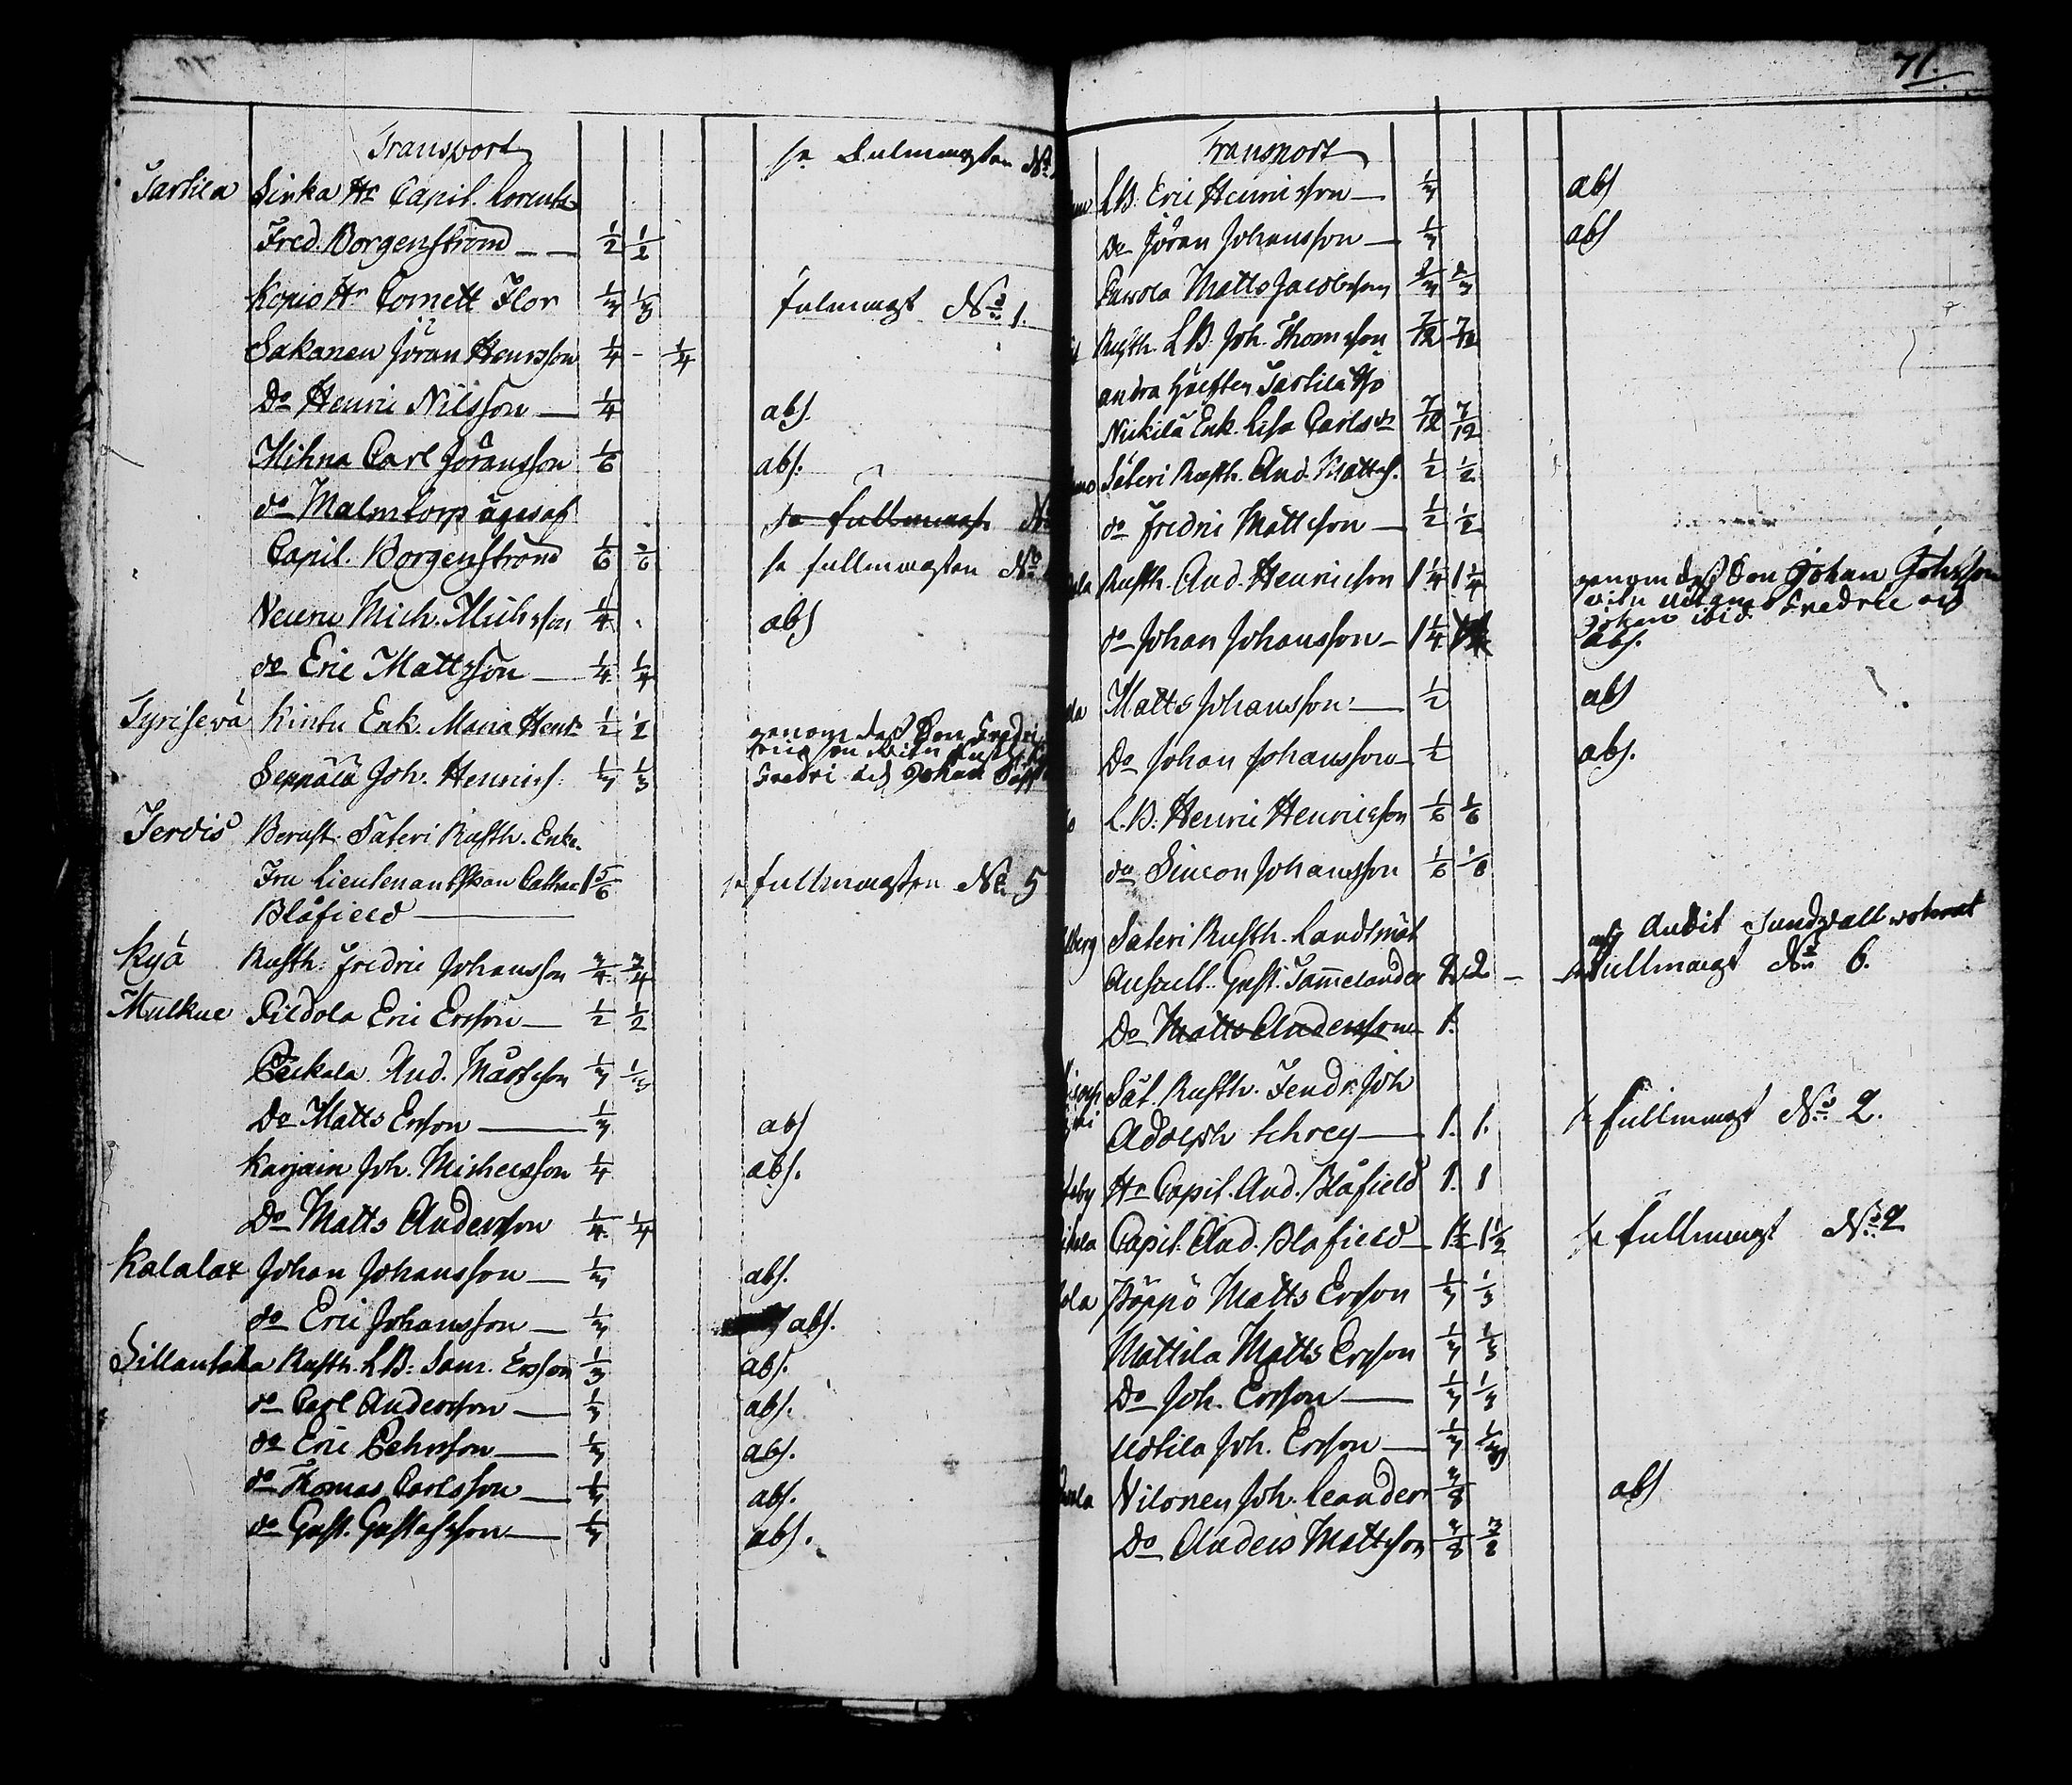 Transport
se Fulmagten No
Sartila Sirka Hr Capit. Lorentz
Fred. Borgenström — — 1/2 1/2
Kopis Hr Cornett Flor 1/3 1/3 fulmagt No 1.
Sakanen Jöran Henrsson 1/4 - 1/4
Do Henric Nilsson — 1/4 abs.
Mihna Carl Jöransson 1/6 abs.
do Malmtorp äges af
Capit. Borgenström 1/6 1/6 se fullmagten No
Mich. Michsson 1/4 abs
do Eric Mattsson — 1/4 1/4
Syrisevä Kintu Enk. Maria Henr. 1/2 1/2 genom dess Son Fredric
Seppälä Joh. Henrics. 1/3 1/3 Fredric och Johan
Jervis Berust. Säteri Rusth. Enke
Fru Lieutenantskan Cathar. 1 5/6 se fullmagten No 5
Blåfield —
Kyä Rusth. Fredric Johansson 3/4 3/4
Mulkue Pildola Eric Ersson — 1/2 1/2
Peckala And. Mårtsson 1/3 1/3
Do Matts Ersson — 1/3 abs
Karjain Joh. Michelsson 1/4 abs.
Do Matts Andersson 1/4 1/4
Kalalax Johan Johansson — 1/3 abs.
do Eric Johansson — 1/3 abs.
Sillantaka Rusth. LB. Sam. Ersson 1/3 abs.
do Carl Andersson — 1/3 abs.
do Eric Pehrsson — 1/3 abs.
do Thomas Carlsson — 1/3 abs.
do Gust. Gustafsson — 1/3 abs.
71.
Transport
LB. Eric Henricsson — 1/3 abs
Do Jöran Johansson — 1/3 abs
Matts Jacobsson 2/3 2/3
Rusth. LB. Joh. Thomsson 7/12 7/12
andra hälften Sartila
Nickilä Enk. Lisa Carlsdr 7/12 7/12
Säteri Rusth. And. Mattss. 1/2 1/2
do Fredric Mattsson — 1/2 1/2
Rusth. And. Henricsson 1 1/4 1 1/4 genom dess Son Johan
Fredric och
do Johan Johansson — 1 1/4 abs.
Matts Johansson — 1/2 abs
Do Johan Johansson — 1/2 abs.
L.B. Henric Henricsson 1/6 1/6
do Simon Johansson 1/6 1/6
Säteri Rusth. Landtmät. Audit Sundvall
Auscult. Gust. Tammelander 2 2 — fullmagt No 6.
Do Matts Andersson — 1.
Sät. Rusth. Fendr. Joh
Adolph Schrey — 1. 1. se fullmagt No 2.
Hr Capit. And. Blåfield 1. 1
Capit. And. Blåfield — 1 1/2 1 1/2 se fullmagt No 2
Pöppö Matts Ersson 1/3 1/3
Mattila Matts Ersson 1/3 1/3
Do Joh. Ersson — 1/3 1/3
Uotila Joh. Ersson — 1/3 1/3
Nilonen Joh. Leander 3/8 abs
Do Anders Mattsson 3/8 3/8